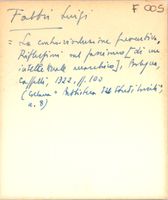 F 005
Fabbri Luigi
= La controrivoluzione preventiva,
Riflessioni sul fascismo [di un
intellettuale anarchico], Bologna,
Cappelli, 1922, pp. 100
(Collana: Biblioteca di Studi Sociali,
n. 8)